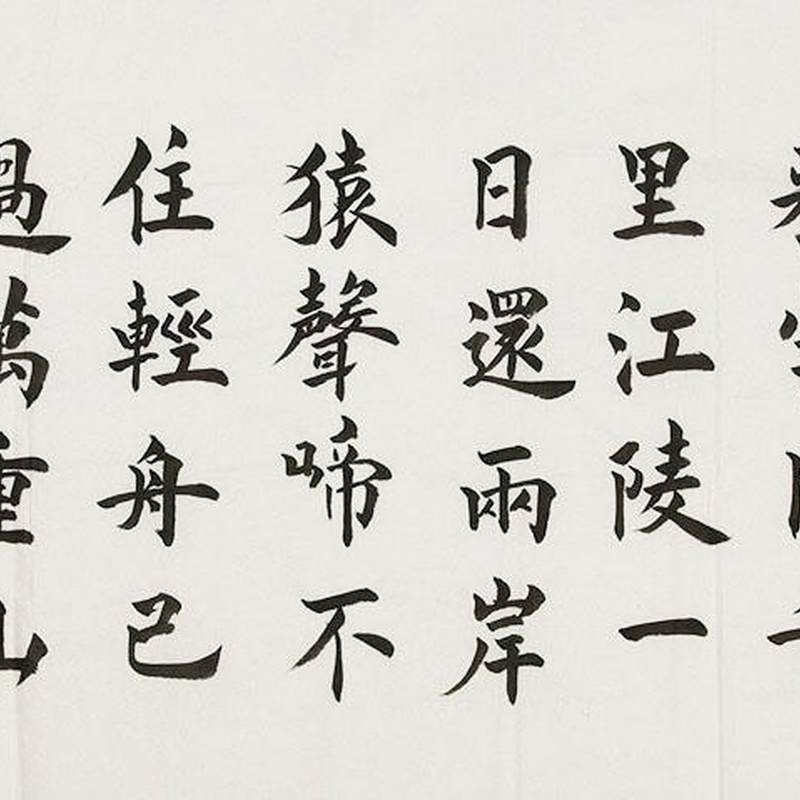 里江陵一
日還兩岸
猿聲啼不
住輕舟已
過萬重山